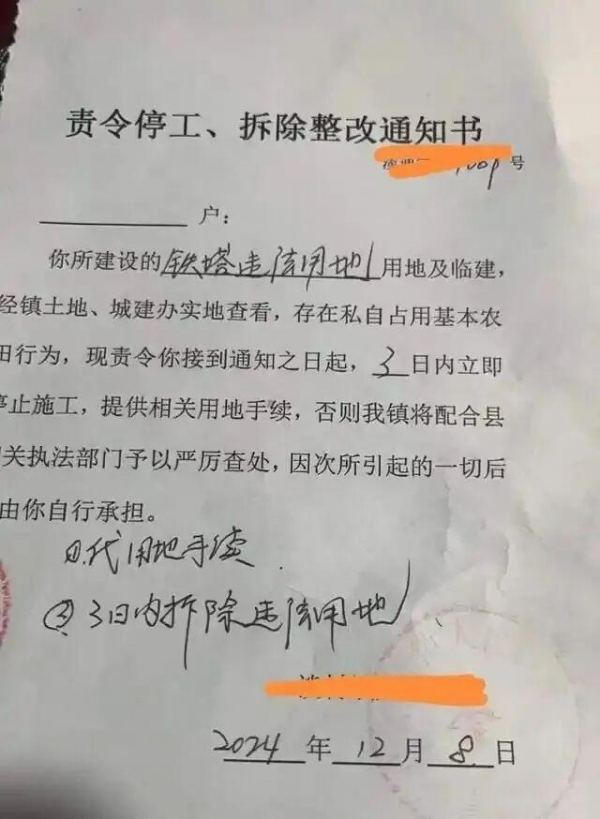 责令停工、拆除整改通知书
号
户：
你所建设的铁塔违法用地用地及临建，
经镇土地、城建办实地查看，存在私自占用基本农
田行为，现责令你接到通知之日起，3日内立即
停止施工，提供相关用地手续，否则我镇将配合县
关执法部门予以严厉查处，因次所引起的一切后
由你自行承担。
①.代用地手续
②3日内拆除违法用地
2024年12月8日